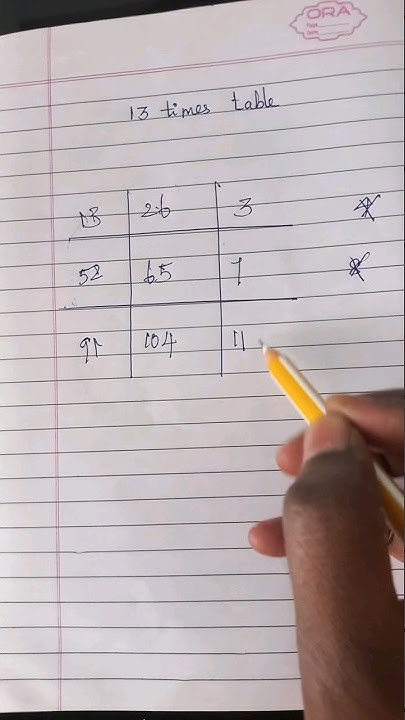 ORA
13 times table
13 26 3
52 65 7
91 104 11